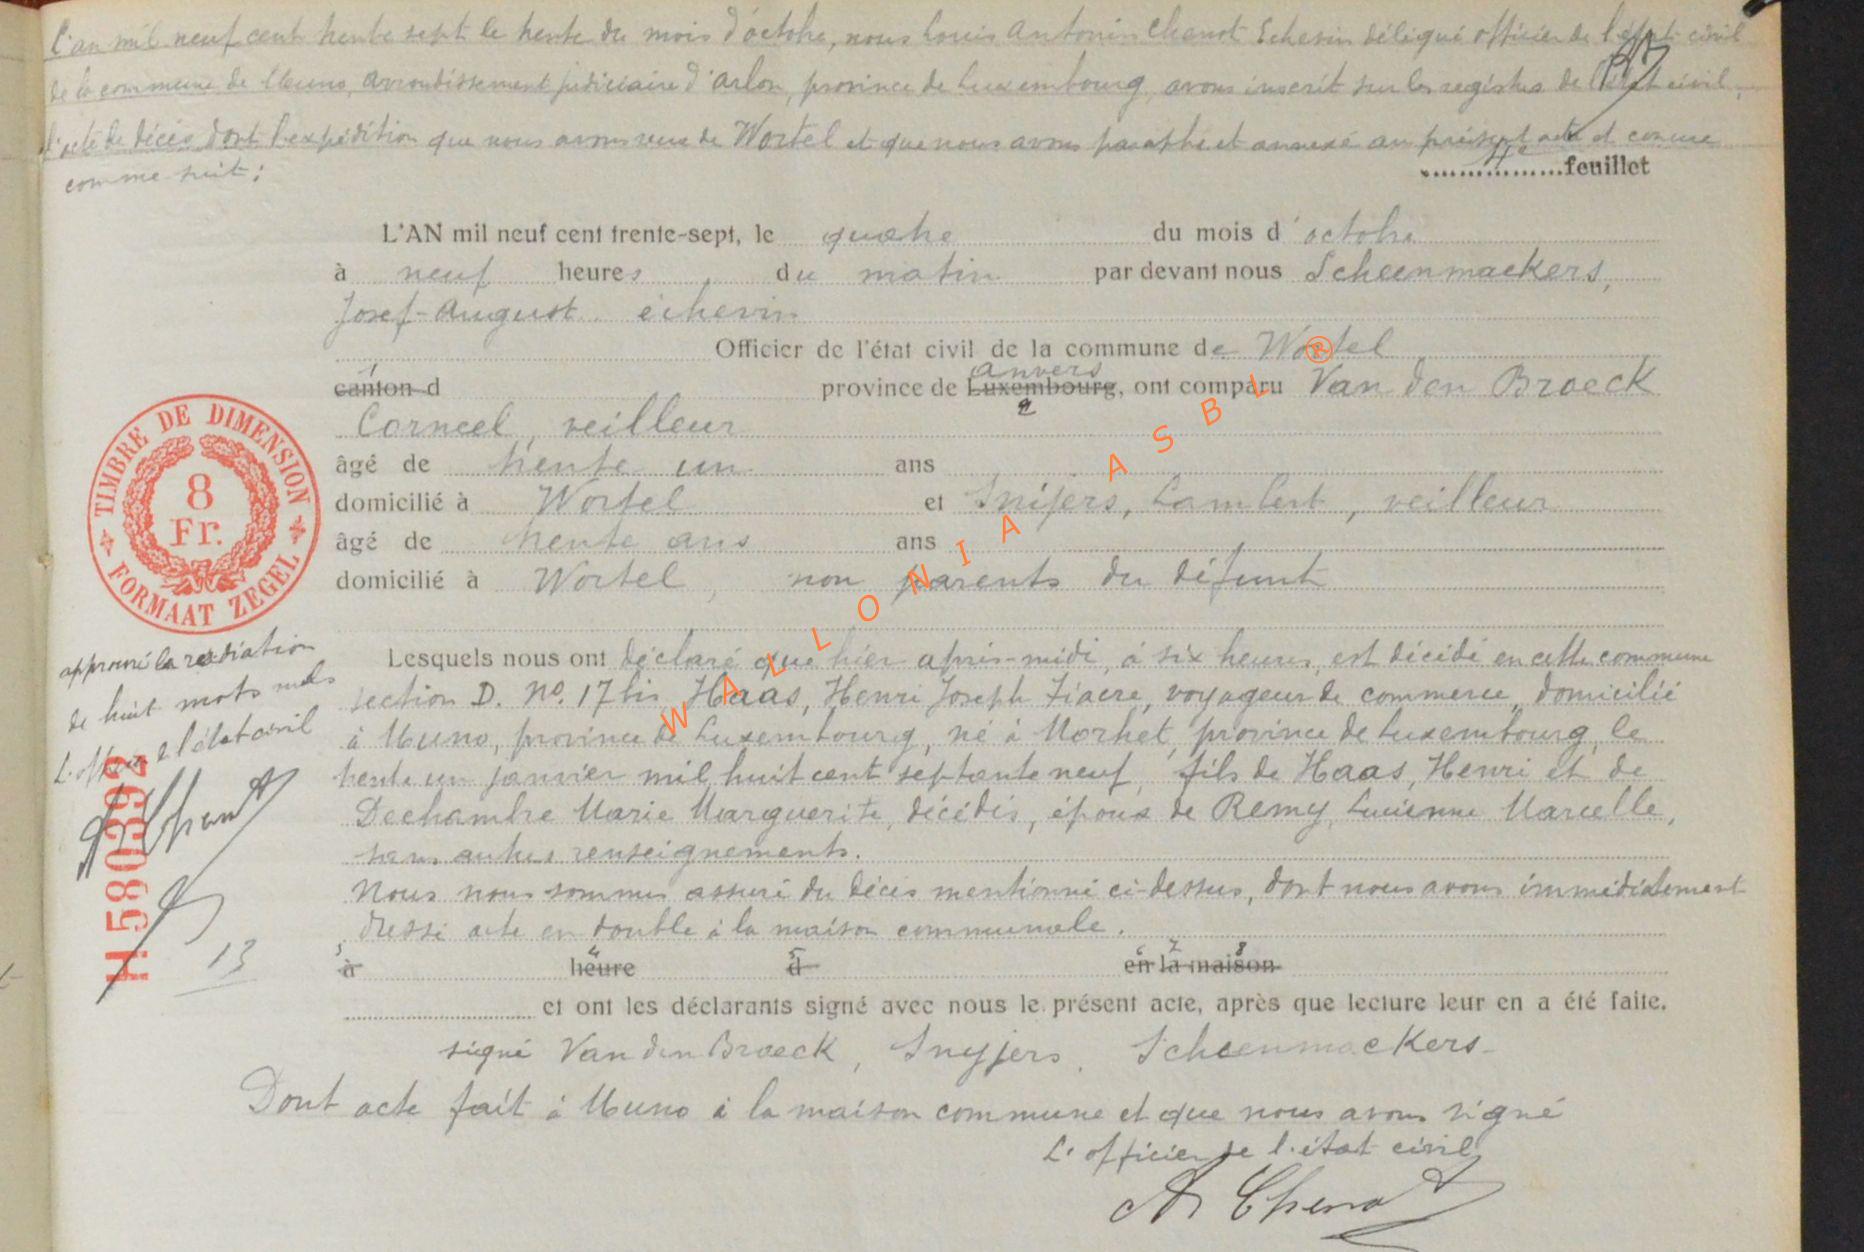 L'an mil neuf cent trente sept le trente du mois d'octobre, nous Louis Antonin Chenot Echevin délégué officier de l'état civil
de la commune de Muno, arrondissement judiciaire d'arlon, province de Luxembourg, avons inscrit sur les registres de l'état civil,
l'acte de décès dont l'expédition que nous avons reçue de Wortel et que nous avons paraphé et annexé au présent acte et conçue
comme suit :
4e feuillet
L'AN mil neuf cent trente-sept, le quatre du mois d'octobre
à neuf heures du matin par devant nous Scheenmaekers,
Josef-August échevin
Officier de l'état civil de la commune de Wortel
1 anvers
canton d province de Luxembourg, ont comparu Van den Broeck
2
Corneel, veilleur
âgé de trente un ans
domicilié à Wortel et Snijers, Lambert, veilleur
âgé de trente ans ans
domicilié à Wortel, non parents du défunt
Lesquels nous ont déclaré que hier après-midi, à six heures, est décédé en cette commune
section D. No. 17 bis, Haas, Henri Joseph Fiacre, voyageur de commerce, domicilié
à Muno, province de Luxembourg, né à Morhet, province de Luxembourg, le
trente un janvier mil huit cent septante neuf, fils de Haas, Henri et de
Dechambre Marie Marguerite, décédés, époux de Remy, Lucienne Marcelle,
sans autres renseignements.
Nous nous sommes assuré du décès mentionné ci-dessus, dont nous avons immédiatement
dressé acte en double à la maison communale.
3 4 5 6 7 8
à heure à en la maison
et ont les déclarants signé avec nous le présent acte, après que lecture leur en a été faite.
signé Van den Broeck, Snyjers, Scheenmaekers
Dont acte fait à Muno à la maison commune et que nous avons signé
L'officier de l'état civil
A Chenot
TIMBRE DE DIMENSION
8
Fr.
FORMAAT ZEGEL
approuvé la radiation
de huit mots nuls
L'officier de l'état civil
A Chenot
H 580392
13
WALLONIA ASBL ®